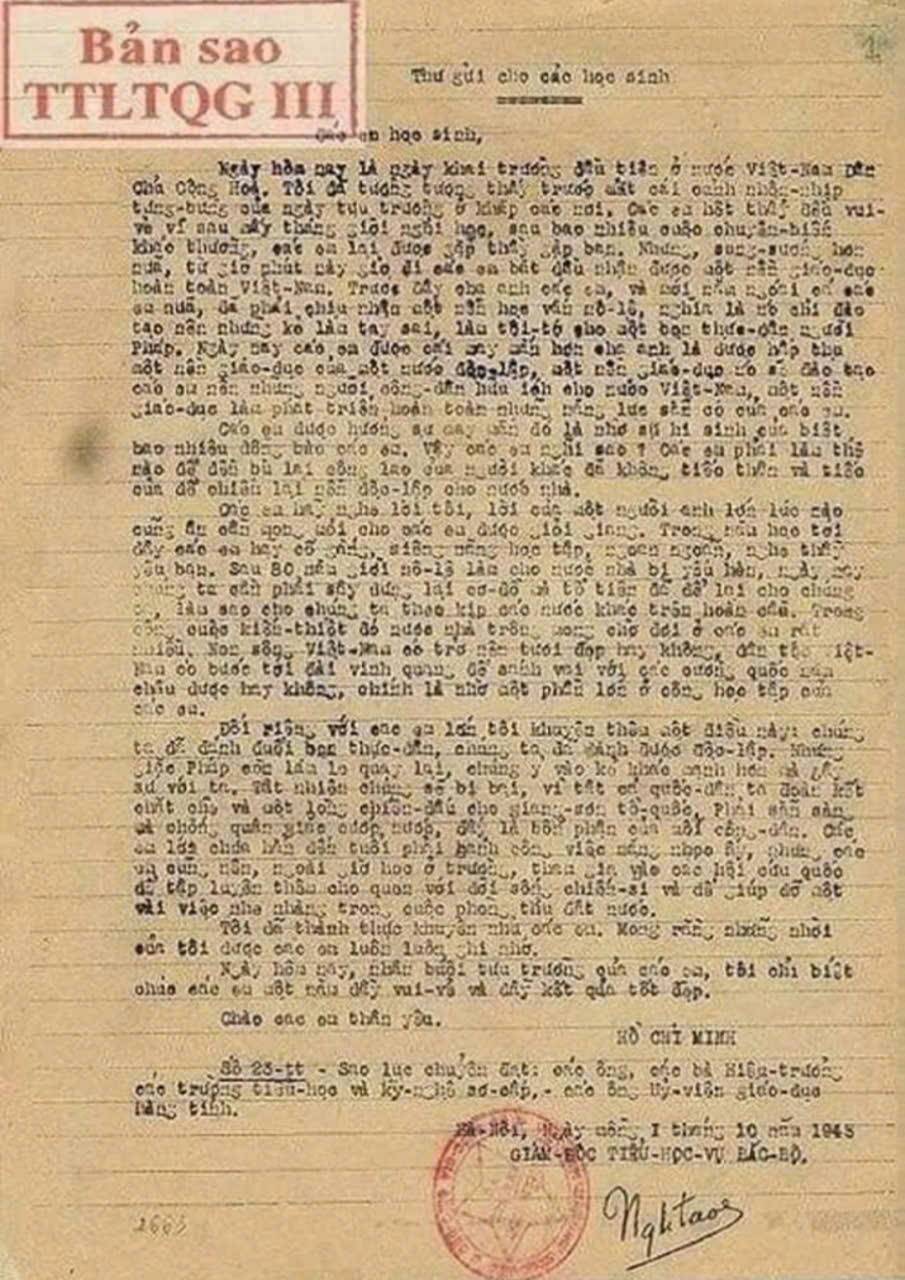 Bản sao
TTLTQG III
Thư gửi cho các học sinh
Các em học sinh,
Ngày hôm nay là ngày khai trường đầu tiên ở nước Việt-Nam Dân
Chủ Cộng Hoà. Tôi đã tưởng tượng thấy trước mắt cái cảnh nhộn-nhịp
tưng-bừng của ngày tựu trường ở khắp các nơi. Các em hết thảy đều vui-
vẻ vì sau mấy tháng giời nghỉ học, sau bao nhiêu cuộc chuyển-biến
khác thường, các em lại được gặp thầy gặp bạn. Nhưng, sung-sướng hơn
nữa, từ giờ phút này giờ đi các em bắt đầu nhận được một nền giáo-dục
hoàn toàn Việt-Nam. Trước đây cha anh các em, và mới năm ngoái cả các
em nữa, đã phải chịu nhận một nền học vấn nô-lệ, nghĩa là nó chỉ đào
tạo nên những kẻ làm tay sai, làm tôi-tớ cho một bọn thực-dân người
Pháp. Ngày nay các em được cái may mắn hơn cha anh là được hấp thụ
một nền giáo-dục của một nước độc-lập, một nền giáo-dục nó sẽ đào tạo
các em nên những người công-dân hữu ích cho nước Việt-Nam, một nền
giáo-dục làm phát triển hoàn toàn những năng lực sẵn có của các em.
Các em được hưởng sự may mắn đó là nhờ sự hi sinh của biết
bao nhiêu đồng bào các em. Vậy các em nghĩ sao ? Các em phải làm thế
nào để đền bù lại công lao của người khác đã không tiếc thân và tiếc
của để chiếm lại nền độc-lập cho nước nhà.
Các em hãy nghe lời tôi, lời của một người anh lớn lúc nào
cũng ân cần mong mỏi cho các em được giỏi giang. Trong năm học tới
đây các em hãy cố gắng, siêng năng học tập, ngoan ngoãn, nghe thầy
yêu bạn. Sau 80 năm giời nô-lệ làm cho nước nhà bị yếu hèn, ngày nay
chúng ta cần phải xây dựng lại cơ-đồ mà tổ tiên đã để lại cho chúng
ta, làm sao cho chúng ta theo kịp các nước khác trên hoàn cầu. Trong
công cuộc kiến-thiết đó nước nhà trông mong chờ đợi ở các em rất
nhiều. Non sông Việt-Nam có trở nên tươi đẹp hay không, dân tộc Việt-
Nam có bước tới đài vinh quang để sánh vai với các cường quốc năm
châu được hay không, chính là nhờ một phần lớn ở công học tập của
các em.
Đối riêng với các em lớn tôi khuyên thêm một điều này: chúng
ta đã đánh đuổi bọn thực-dân, chúng ta đã dành được độc-lập. Nhưng
giặc Pháp còn lăm le quay lại, chúng ỷ vào kẻ khác mạnh hơn mà gây
sự với ta. Tất nhiên chúng sẽ bị bại, vì tất cả quốc-dân ta đoàn kết
chặt chẽ và một lòng chiến-đấu cho giang-sơn tổ-quốc. Phải sẵn sàng
mà chống quân giặc cướp nước, đấy là bổn phận của mỗi công-dân. Các
em lớn chưa hẳn đến tuổi phải gánh công việc nặng nhọc ấy, nhưng các
em cũng nên, ngoài giờ học ở trường, tham gia vào các hội cứu quốc
để tập luyện thêm cho quen với đời sống chiến-sĩ và để giúp đỡ một
vài việc nhẹ nhàng trong cuộc phòng thủ đất nước.
Tôi đã thành thực khuyên nhủ các em. Mong rằng những nhời
của tôi được các em luôn luôn ghi nhớ.
Ngày hôm nay, nhân buổi tựu trường của các em, tôi chỉ biết
chúc các em một năm đầy vui-vẻ và đầy kết quả tốt đẹp.
Chào các em thân yêu.
HỒ CHÍ MINH
Số 23-tt - Sao lục chuyển đạt: các ông, các bà Hiệu-trưởng
các trường tiểu-học và kỹ-nghệ sơ-cấp,- các ông Uỷ-viên giáo-dục
hàng tỉnh.
Hà-Nội, Ngày mồng I tháng 10 năm 1945
GIÁM-ĐỐC TIỂU-HỌC-VỤ BẮC-BỘ.
2663